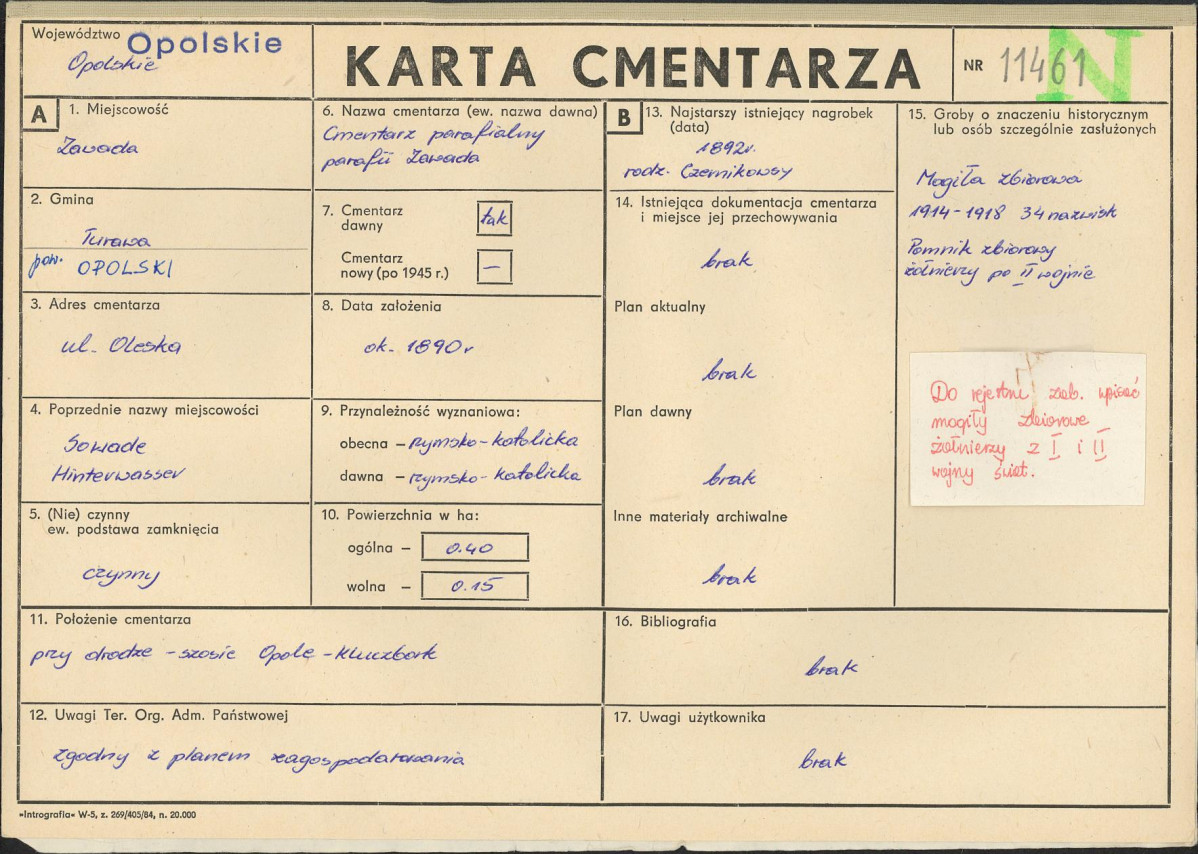 Województwo Opolskie
Opolskie
KARTA CMENTARZA
NR 11461
N
A
1. Miejscowość
Zawada
2. Gmina
Turawa
pow. OPOLSKI
3. Adres cmentarza
ul. Oleska
4. Poprzednie nazwy miejscowości
Sowade
Hinterwasser
5. (Nie) czynny
ew. podstawa zamknięcia
czynny
6. Nazwa cmentarza (ew. nazwa dawna)
Cmentarz parafialny
parafii Zawada
7. Cmentarz
dawny
tak
Cmentarz
nowy (po 1945 r.)
—
8. Data założenia
ok. 1890 r
9. Przynależność wyznaniowa:
obecna – rzymsko-katolicka
dawna – rzymsko-katolicka
10. Powierzchnia w ha:
ogólna – 0.40
wolna – 0.15
11. Położenie cmentarza
przy drodze - szosie Opole - Kluczbork
12. Uwagi Ter. Org. Adm. Państwowej
zgodny z planem zagospodarowania
B
13. Najstarszy istniejący nagrobek
(data)
1892r.
rodz. Czernikowscy
14. Istniejąca dokumentacja cmentarza
i miejsce jej przechowywania
brak
Plan aktualny
brak
Plan dawny
brak
Inne materiały archiwalne
brak
15. Groby o znaczeniu historycznym
lub osób szczególnie zasłużonych
Mogiła zbiorowa
1914-1918 34 nazwisk
Pomnik zbiorowy
żołnierzy po II wojnie
Do rejestru zab. wpisać
mogiły zbiorowe
żołnierzy z I i II
wojny świat.
16. Bibliografia
brak
17. Uwagi użytkownika
brak
»Intrografia« W-5, z. 269/405/84, n. 20.000